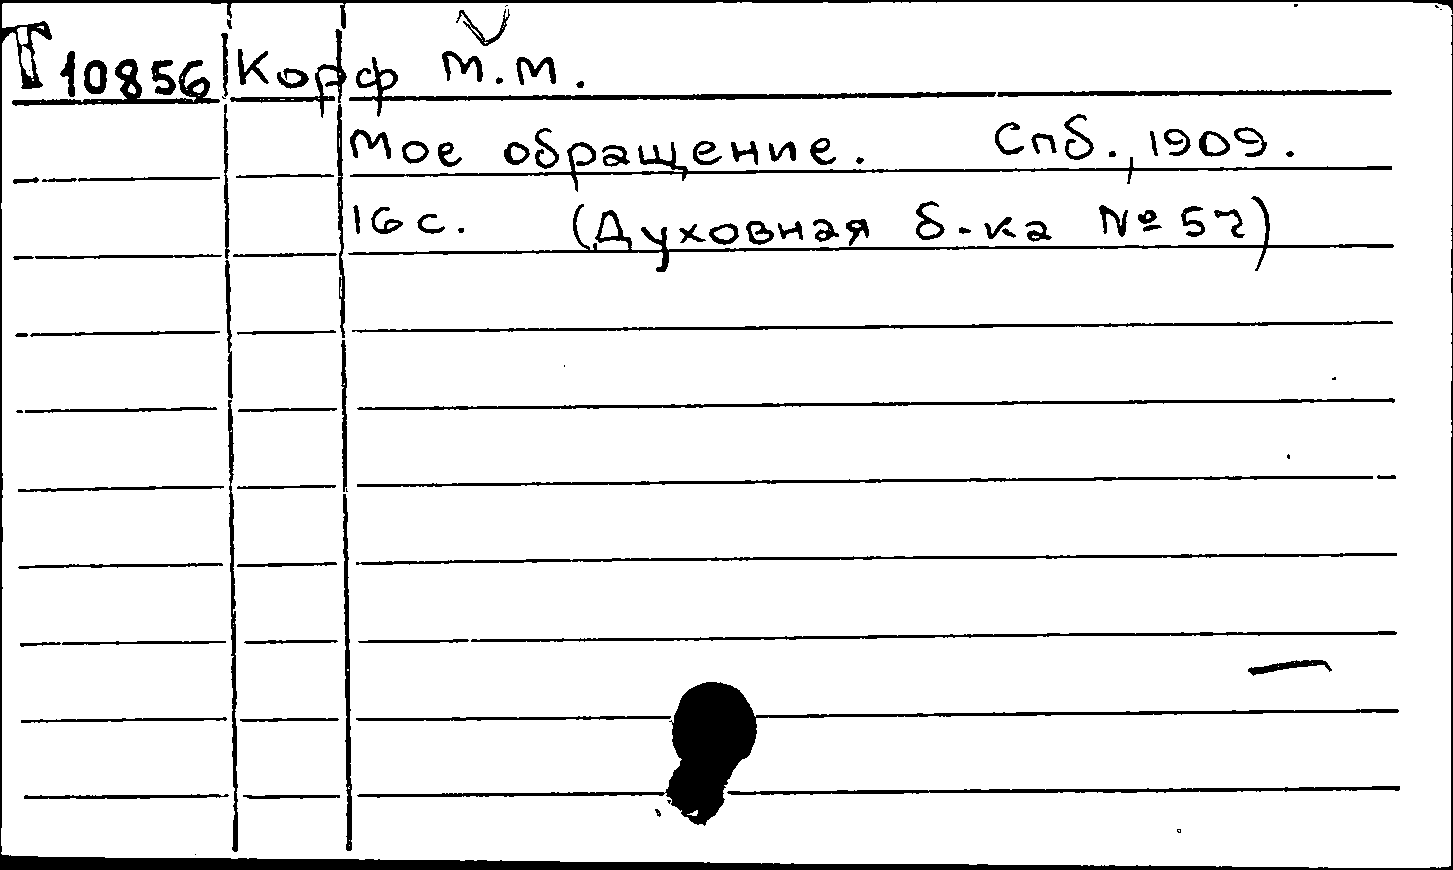 Т 10856 Корф М.М.
Мое обращение. Спб., 1909.
16 с. (Духовная б-ка № 57)